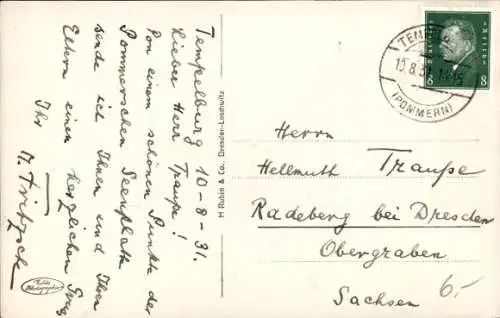 Tempelburg 10-8-31.
Lieber Herr Traupe!
Von einem schönen Punkte der
Pommerschen Seenplatte
sende ich Ihnen und Ihren
Eltern einen herzlichen Gruß
Ihr
M. Fritzsch
M Rubin & Co. Dresden-Loschwitz
TEMPELBURG
10.8.31
(POMMERN)
8 8
Herrn
Hellmuth Traupe
Radeberg bei Dresden
Obergraben
Sachsen
6.-